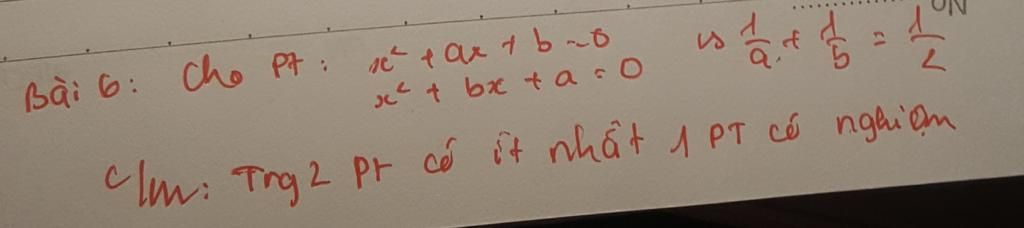 ON
Bài 6: Cho PT: x² + ax + b = 0 vs 1/a + 1/b = 1/2
x² + bx + a = 0
c/m: Trg 2 PT có ít nhất 1 PT có nghiệm